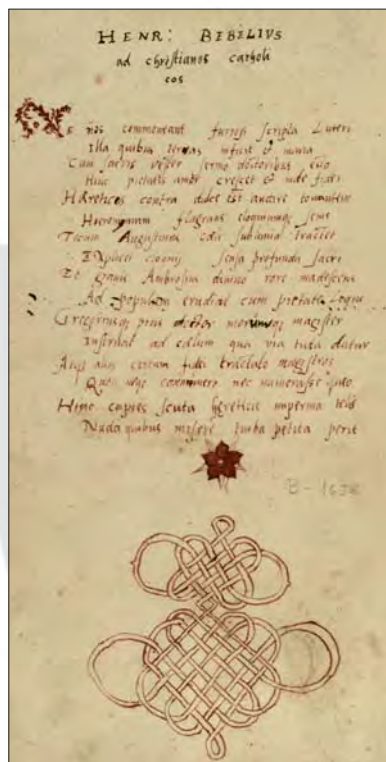 HENR: BEBELIVS
ad christianos catholi
cos
Ne nos commoveant furiosi scripta Luteri
Illa quibus terras inficit et maria
Cum sacris vester sermo doctoribus esto
Hinc pietatis amor crescet et inde fidei
Hæreticos contra
Hieronymum flagrans eloquiumque senis
Tecum Augustinus cœli sublimia tractet
Explicet eloquii sensa profunda sacri
Et gravis Ambrosius divino rore madescens
Ad populum erudiat cum pietate loqui
Gregoriusque pius doctor morumque magister
Instruat ad cœlum qua via tuta datur
Atque alios certam fidei tractato magistros
Quos neque connumero nec numerasse queo
Hinc capies scuta hereticis impervia telis
Nuda quibus misere turba petita perit
B - 1638